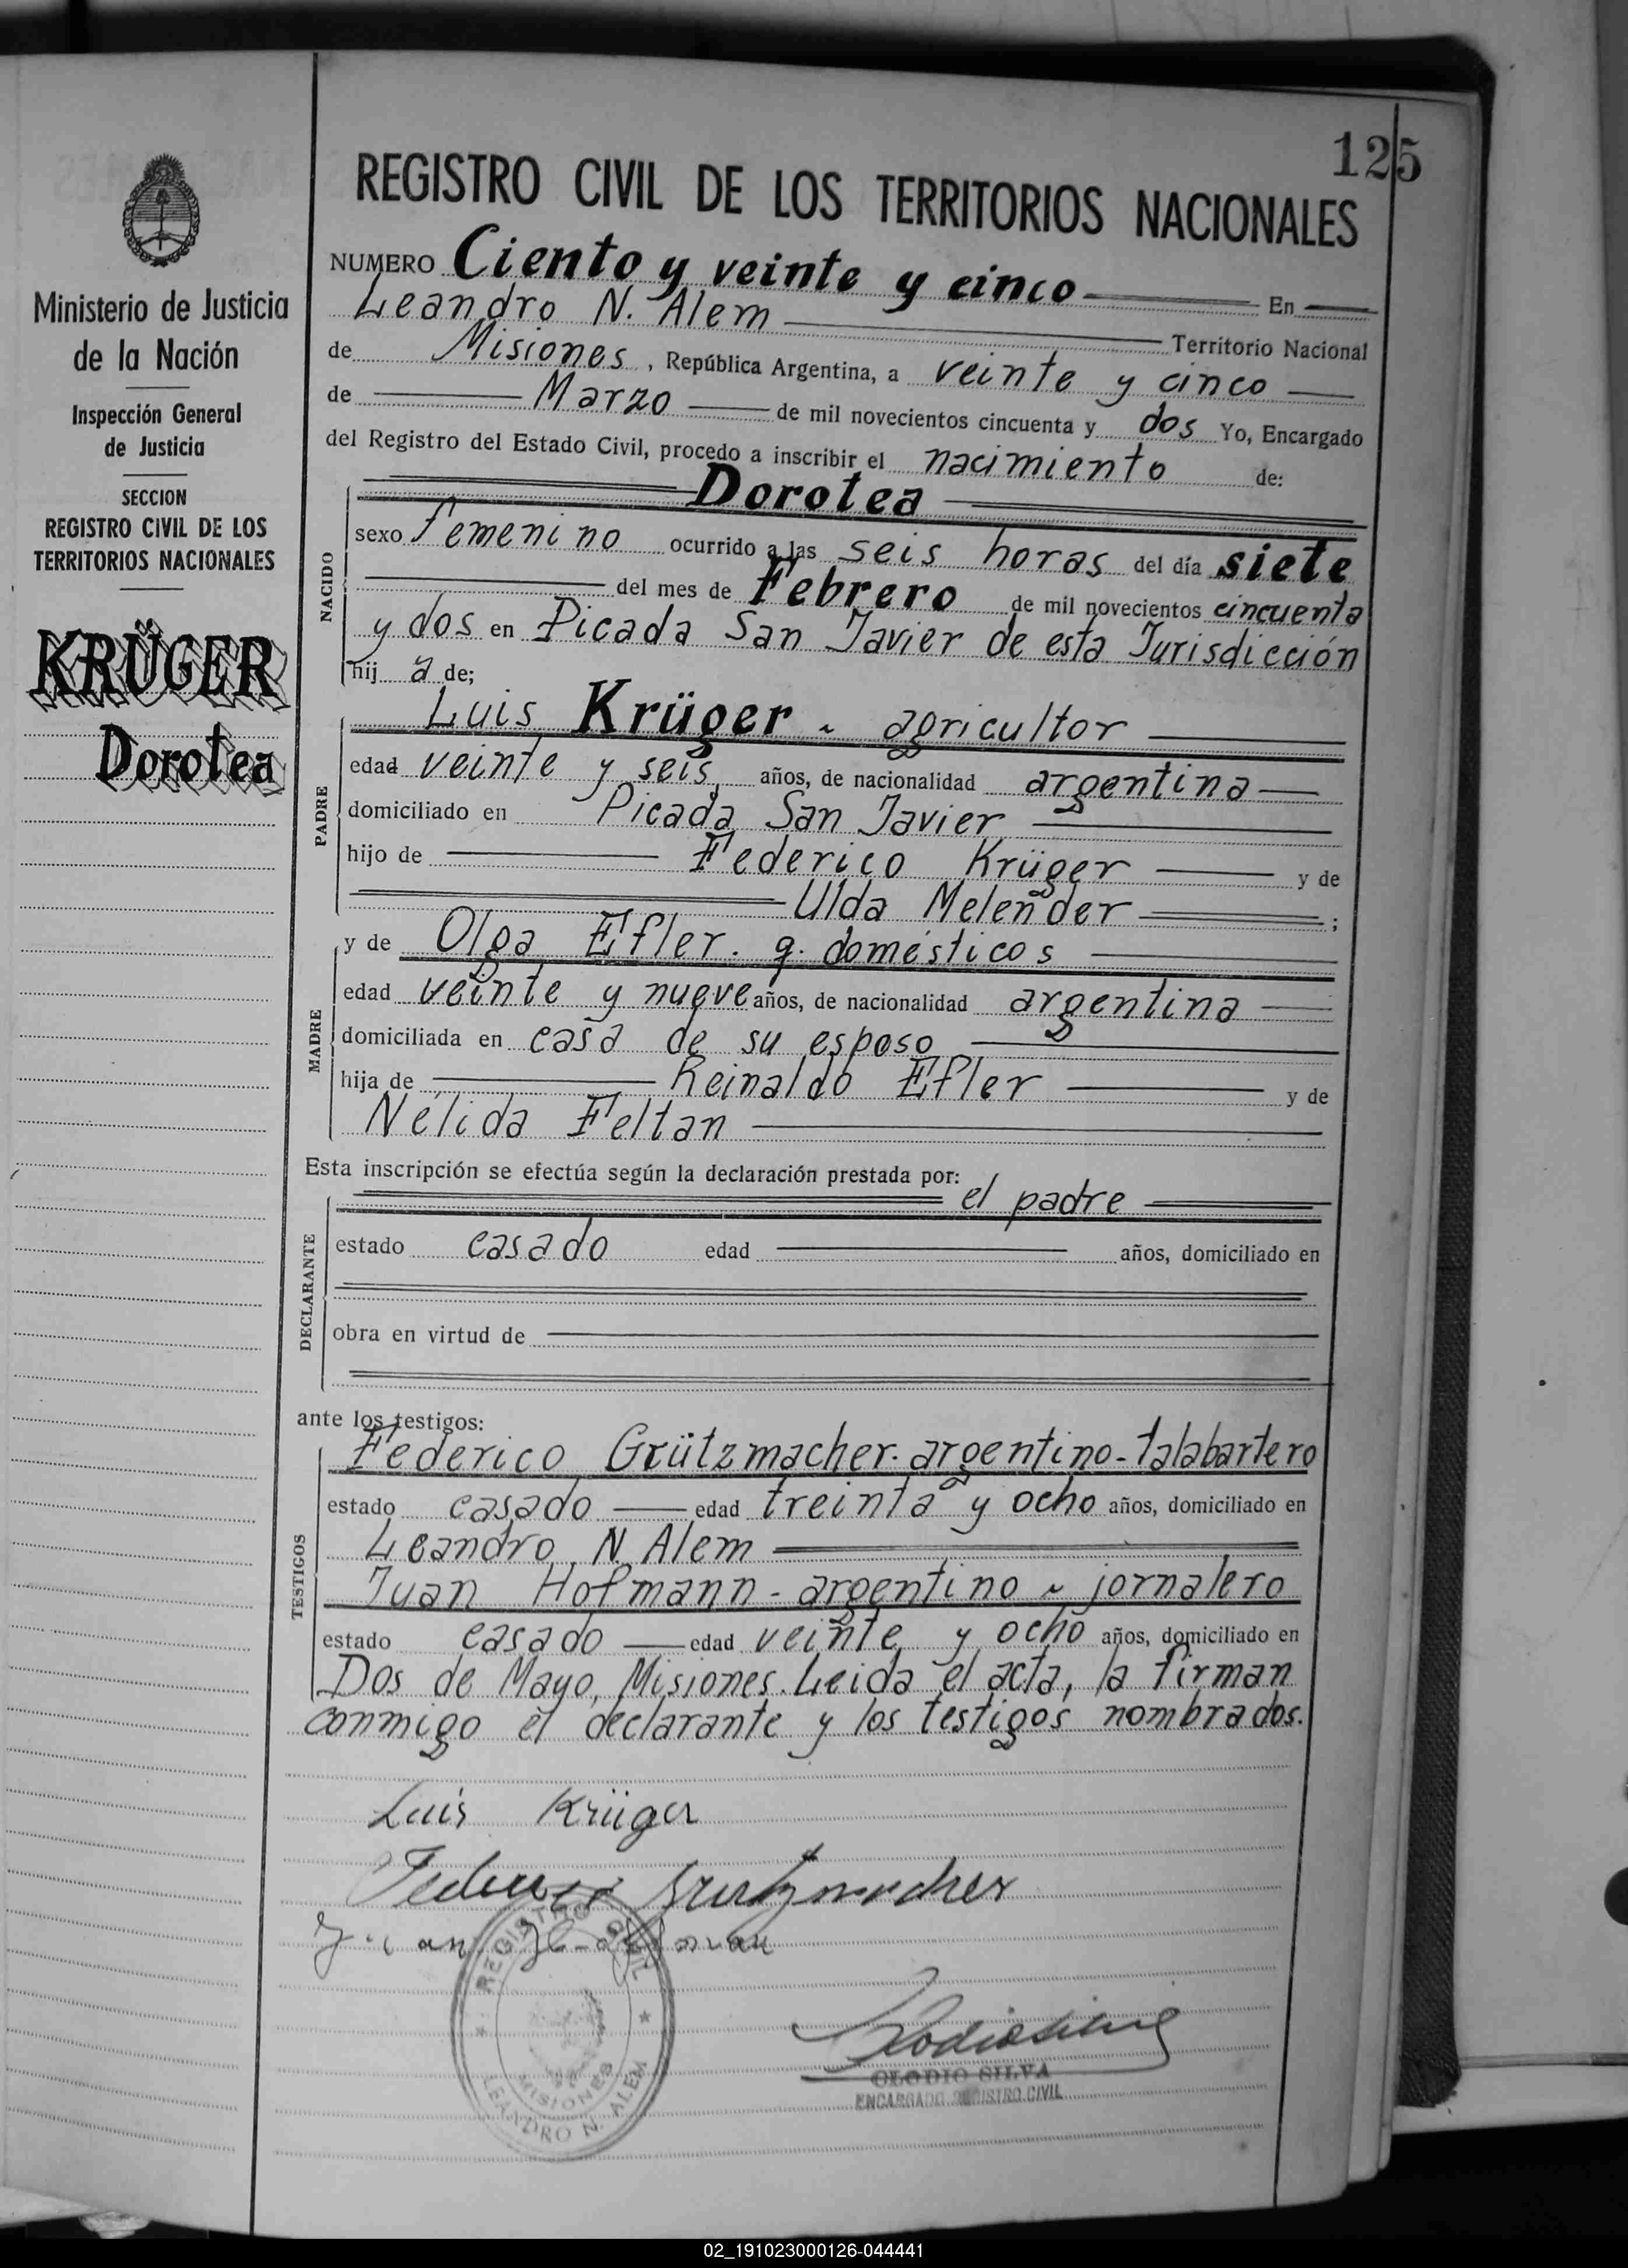 125
REGISTRO CIVIL DE LOS TERRITORIOS NACIONALES
Ministerio de Justicia
de la Nación
Inspección General
de Justicia
SECCION
REGISTRO CIVIL DE LOS
TERRITORIOS NACIONALES
KRÜGER
Dorotea
NUMERO Ciento y veinte y cinco En
Leandro N. Alem Territorio Nacional
de Misiones, República Argentina, a veinte y cinco
de Marzo de mil novecientos cincuenta y dos Yo, Encargado
del Registro del Estado Civil, procedo a inscribir el nacimiento de:
NACIDO
Dorotea
sexo femenino ocurrido a las seis horas del día siete
del mes de Febrero de mil novecientos cincuenta
y dos en Picada San Javier de esta Jurisdicción
hij a de;
PADRE
Luis Krüger - agricultor
edad veinte y seis años, de nacionalidad argentina
domiciliado en Picada San Javier
hijo de Federico Krüger y de
Ulda Melender;
MADRE
y de Olga Efler. q. domésticos
edad veinte y nueve años, de nacionalidad argentina
domiciliada en casa de su esposo
hija de Reinaldo Efler y de
Nélida Feltan
Esta inscripción se efectúa según la declaración prestada por:
DECLARANTE
el padre
estado casado edad años, domiciliado en
obra en virtud de
ante los testigos:
TESTIGOS
Federico Grützmacher. argentino - talabartero
estado casado edad treinta y ocho años, domiciliado en
Leandro N. Alem
Juan Hofmann - argentino - jornalero
estado casado edad veinte y ocho años, domiciliado en
Dos de Mayo, Misiones. Leida el acta, la firman
conmigo el declarante y los testigos nombrados.
Luis Krüger
Federico Grützmacher
Juan
REGISTRO CIVIL
MISIONES
LEANDRO N. ALEM
CLODIO SILVA
ENCARGADO REGISTRO CIVIL
02_191023000126-044441